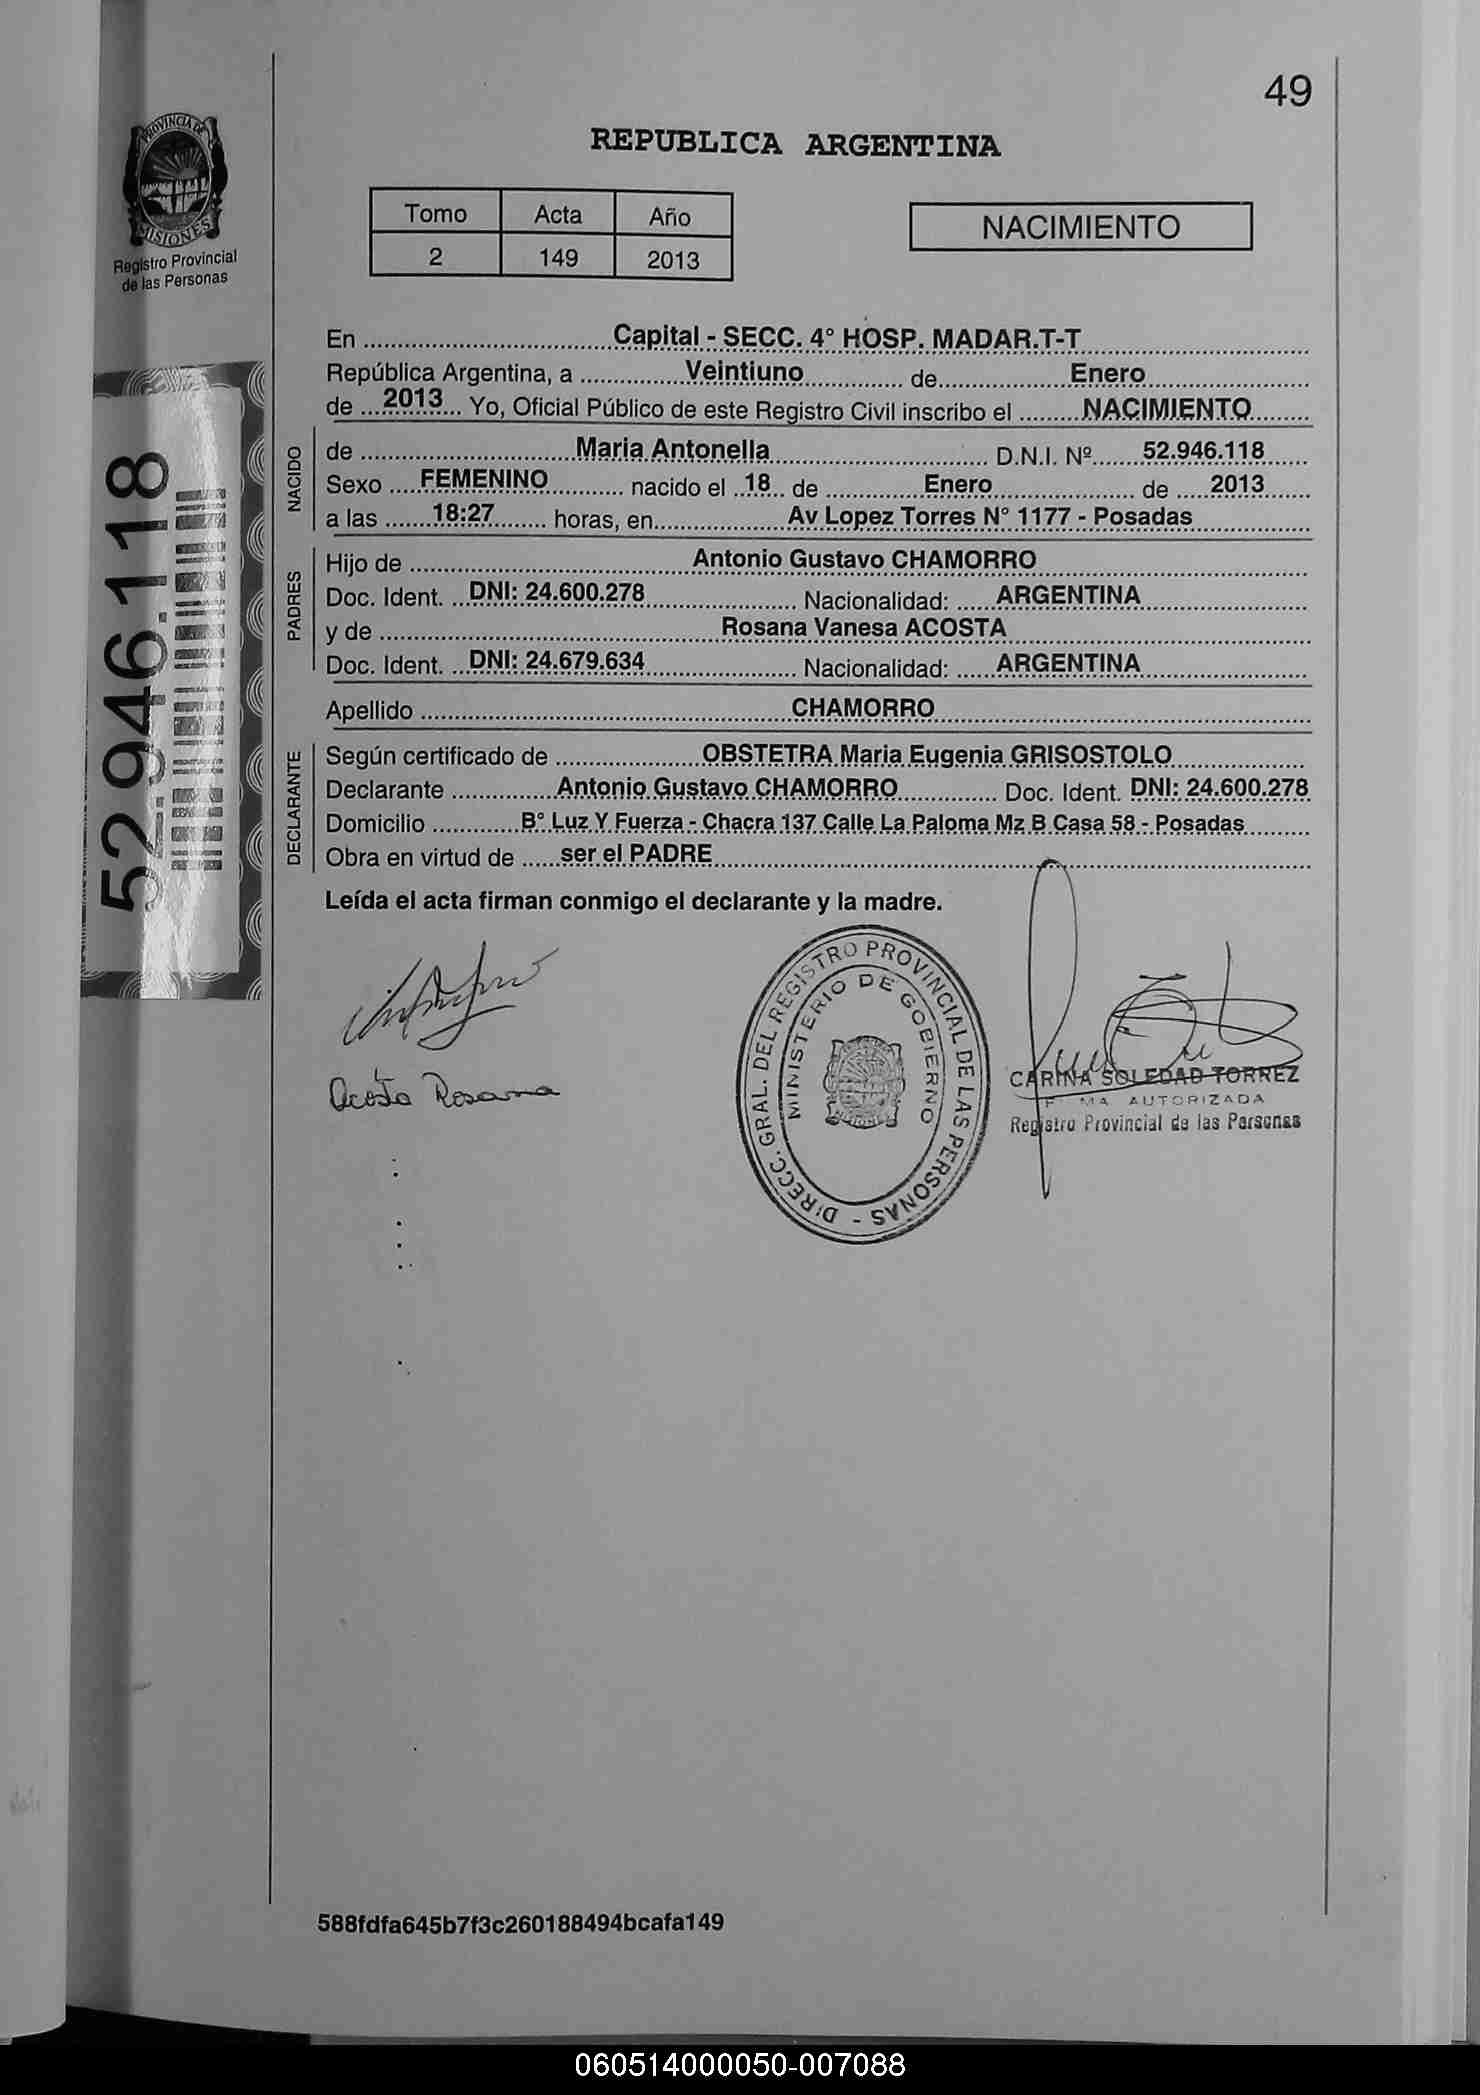 49
PROVINCIA DE
MISIONES
Registro Provincial
de las Personas
REPUBLICA ARGENTINA
Tomo Acta Año
2 149 2013
NACIMIENTO
En ................ Capital - SECC. 4° HOSP. MADAR.T-T ................
República Argentina, a ................ Veintiuno ................ de ................ Enero ................
de ... 2013 ... Yo, Oficial Público de este Registro Civil inscribo el ........ NACIMIENTO ........
52.946.118
NACIDO
de ................ Maria Antonella ................ D.N.I. Nº ....... 52.946.118 ......
Sexo .... FEMENINO .......... nacido el .. 18 .. de ............. Enero ................ de ..... 2013 ......
a las ....... 18:27 ........ horas, en ................ Av Lopez Torres N° 1177 - Posadas ................
PADRES
Hijo de ................ Antonio Gustavo CHAMORRO ................
Doc. Ident. ... DNI: 24.600.278 ................ Nacionalidad: ..... ARGENTINA ................
y de ................ Rosana Vanesa ACOSTA ................
Doc. Ident. ... DNI: 24.679.634 ................ Nacionalidad: ..... ARGENTINA ................
Apellido ................ CHAMORRO ................
DECLARANTE
Según certificado de ................ OBSTETRA Maria Eugenia GRISOSTOLO ................
Declarante ............... Antonio Gustavo CHAMORRO .............. Doc. Ident. DNI: 24.600.278
Domicilio ............. B° Luz Y Fuerza - Chacra 137 Calle La Paloma Mz B Casa 58 - Posadas .........
Obra en virtud de ..... ser el PADRE ................
Leída el acta firman conmigo el declarante y la madre.
Acosta Rosana
DIRECC. GRAL. DEL REGISTRO PROVINCIAL DE LAS PERSONAS -
MINISTERIO DE GOBIERNO
MISIONES
CARINA SOLEDAD TORREZ
AUTORIZADA
Registro Provincial de las Personas
588fdfa645b7f3c260188494bcafa149
060514000050-007088